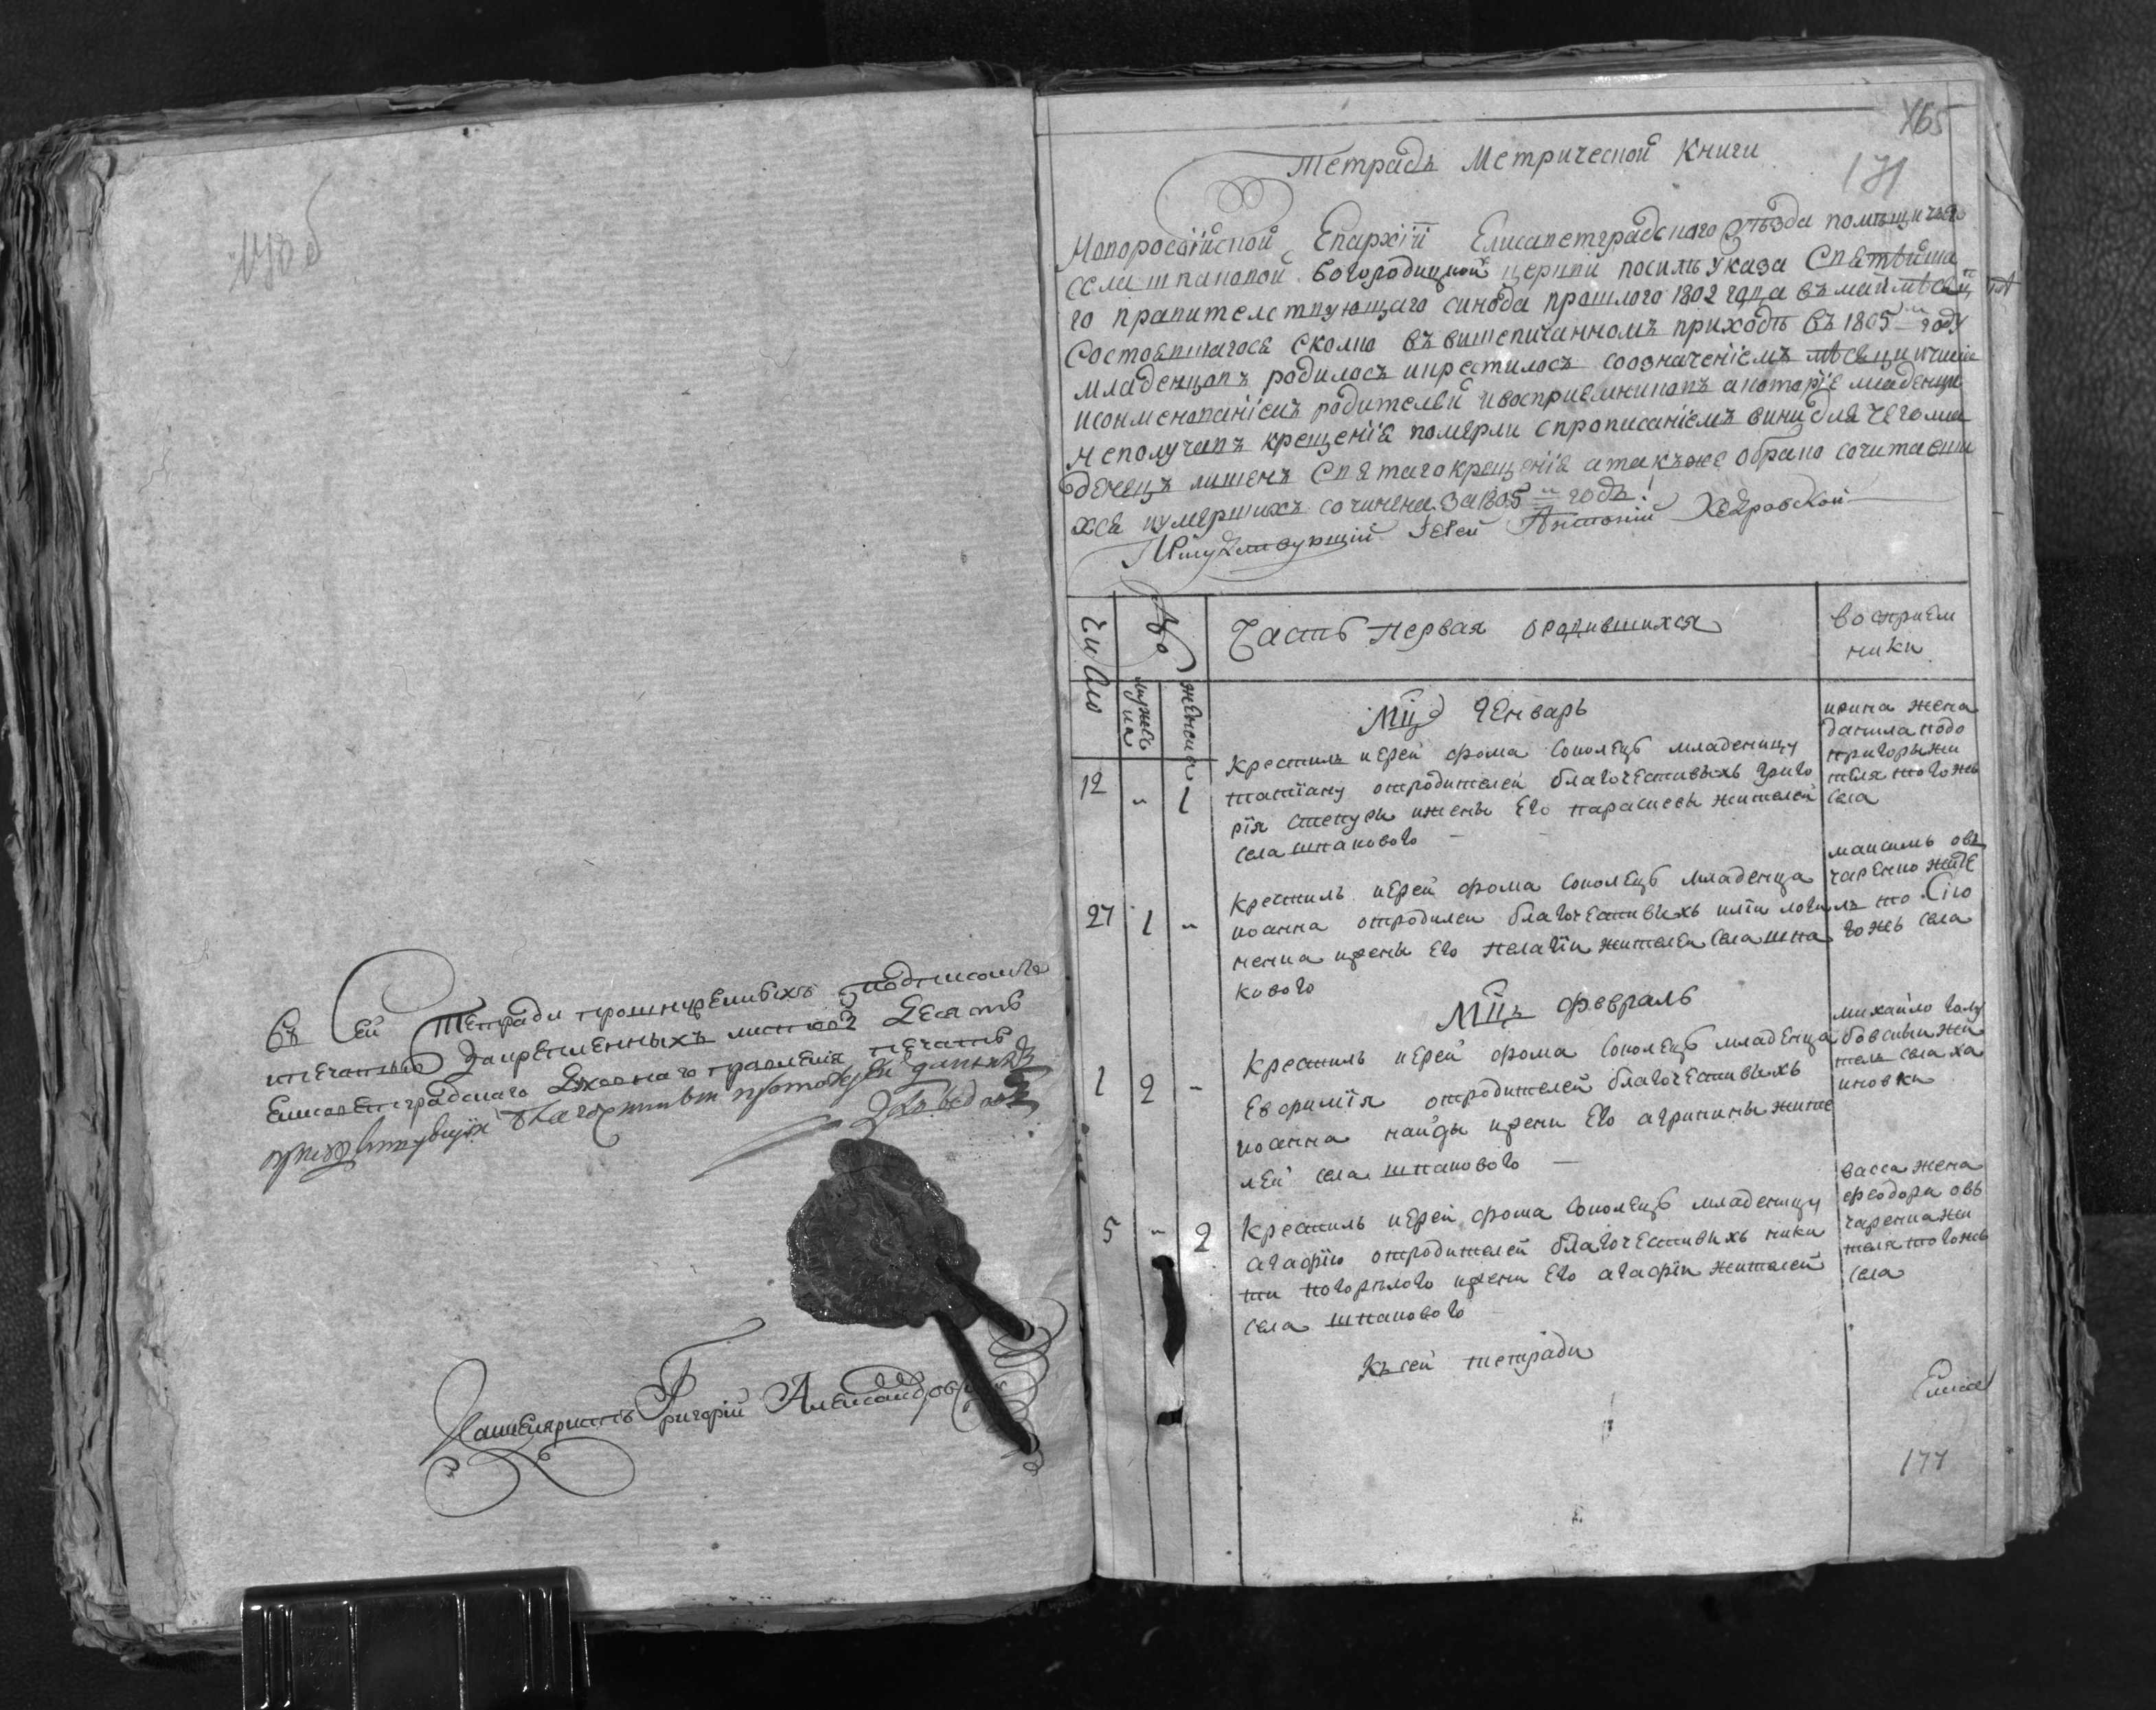 170 б
Въ сей Тетради прошнуренныхъ подписомъ
ипечатью закрепленныхъ листовъ Десять
Елисаветградскаго Духовнаго правленія печать
присудствующій благочинный протоіерей
Канцеляристъ Григорій Александровскій
165
171
Тетрадь Метрической Книги
Новоросійской Епархіи Елисаветградскаго уѣзда помѣщичья
села шпаковой богородицкой церкви посилѣ указа Святѣйша
го правителствующаго синода прошлого 1802 года въ маи мѣсяц
Состоявшагося сколко въ вишеписанномъ приходѣ въ 1805 м году
младенцовъ родилось икрестилось соозначеніемъ мѣсяца ичисла
исоименованіемъ родителей ивосприемниковъ акоторіе младенци
неполучавъ крещенія померли спрописаніемъ вини для чего мла
денецъ лишенъ Святаго крещенія атакъже обрано сочитавши
хся иумершихъ сочинена. За 1805 й годъ!
Присудствующій Іерей Антоній
Число
мужеска
женска
Часть первая ородившихся
восприем
ники
Мцъ генварь
12 " 1
Крестилъ иерей фома Соколецъ младеницу
татіану отродителей благочестивыхъ григо
рія ижены его параскевы жителей
села шпакового
ирина жена
данила подо
пригоры жи
теля тогожъ
села
27 1 "
Крестилъ иерей фома Соколецъ младенца
иоанна отродилей благочестивыхъ иліи логи
ненка ижены его пелагіи жителей села шпа
кового
максимъ овъ
чаренко жите
гожъ села
Мцъ февраль
1 2 -
Крестилъ иерей фома Соколецъ младенца
Евфимія отродителей благочестивыхъ
иоанна ижени его агрипины жите
лей села шпакового
михайло голу
бовскии жи
тель села ха
иновки
5 " 2
Крестилъ иерей фома Соколецъ младеницу
агафію отродителей благочестивихъ ники
ти погорѣлого ижени его агафіи жителей
села шпакового
васса жена
феодора овъ
чаренка жи
теля тогожъ
села
Къ сей тетради
177